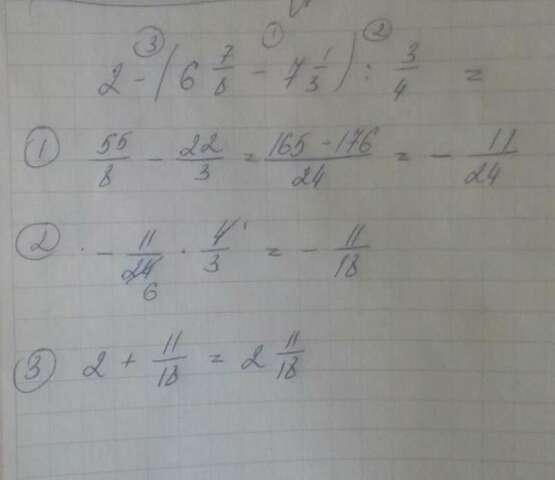 ③ ① ②
2 - (6 7/8 - 7 1/3) : 3/4 =
① 55/8 - 22/3 = 165 - 176/24 = - 11/24
② · - 11/24 · 4/3 = - 11/18
1
6
③ 2 + 11/18 = 2 11/18